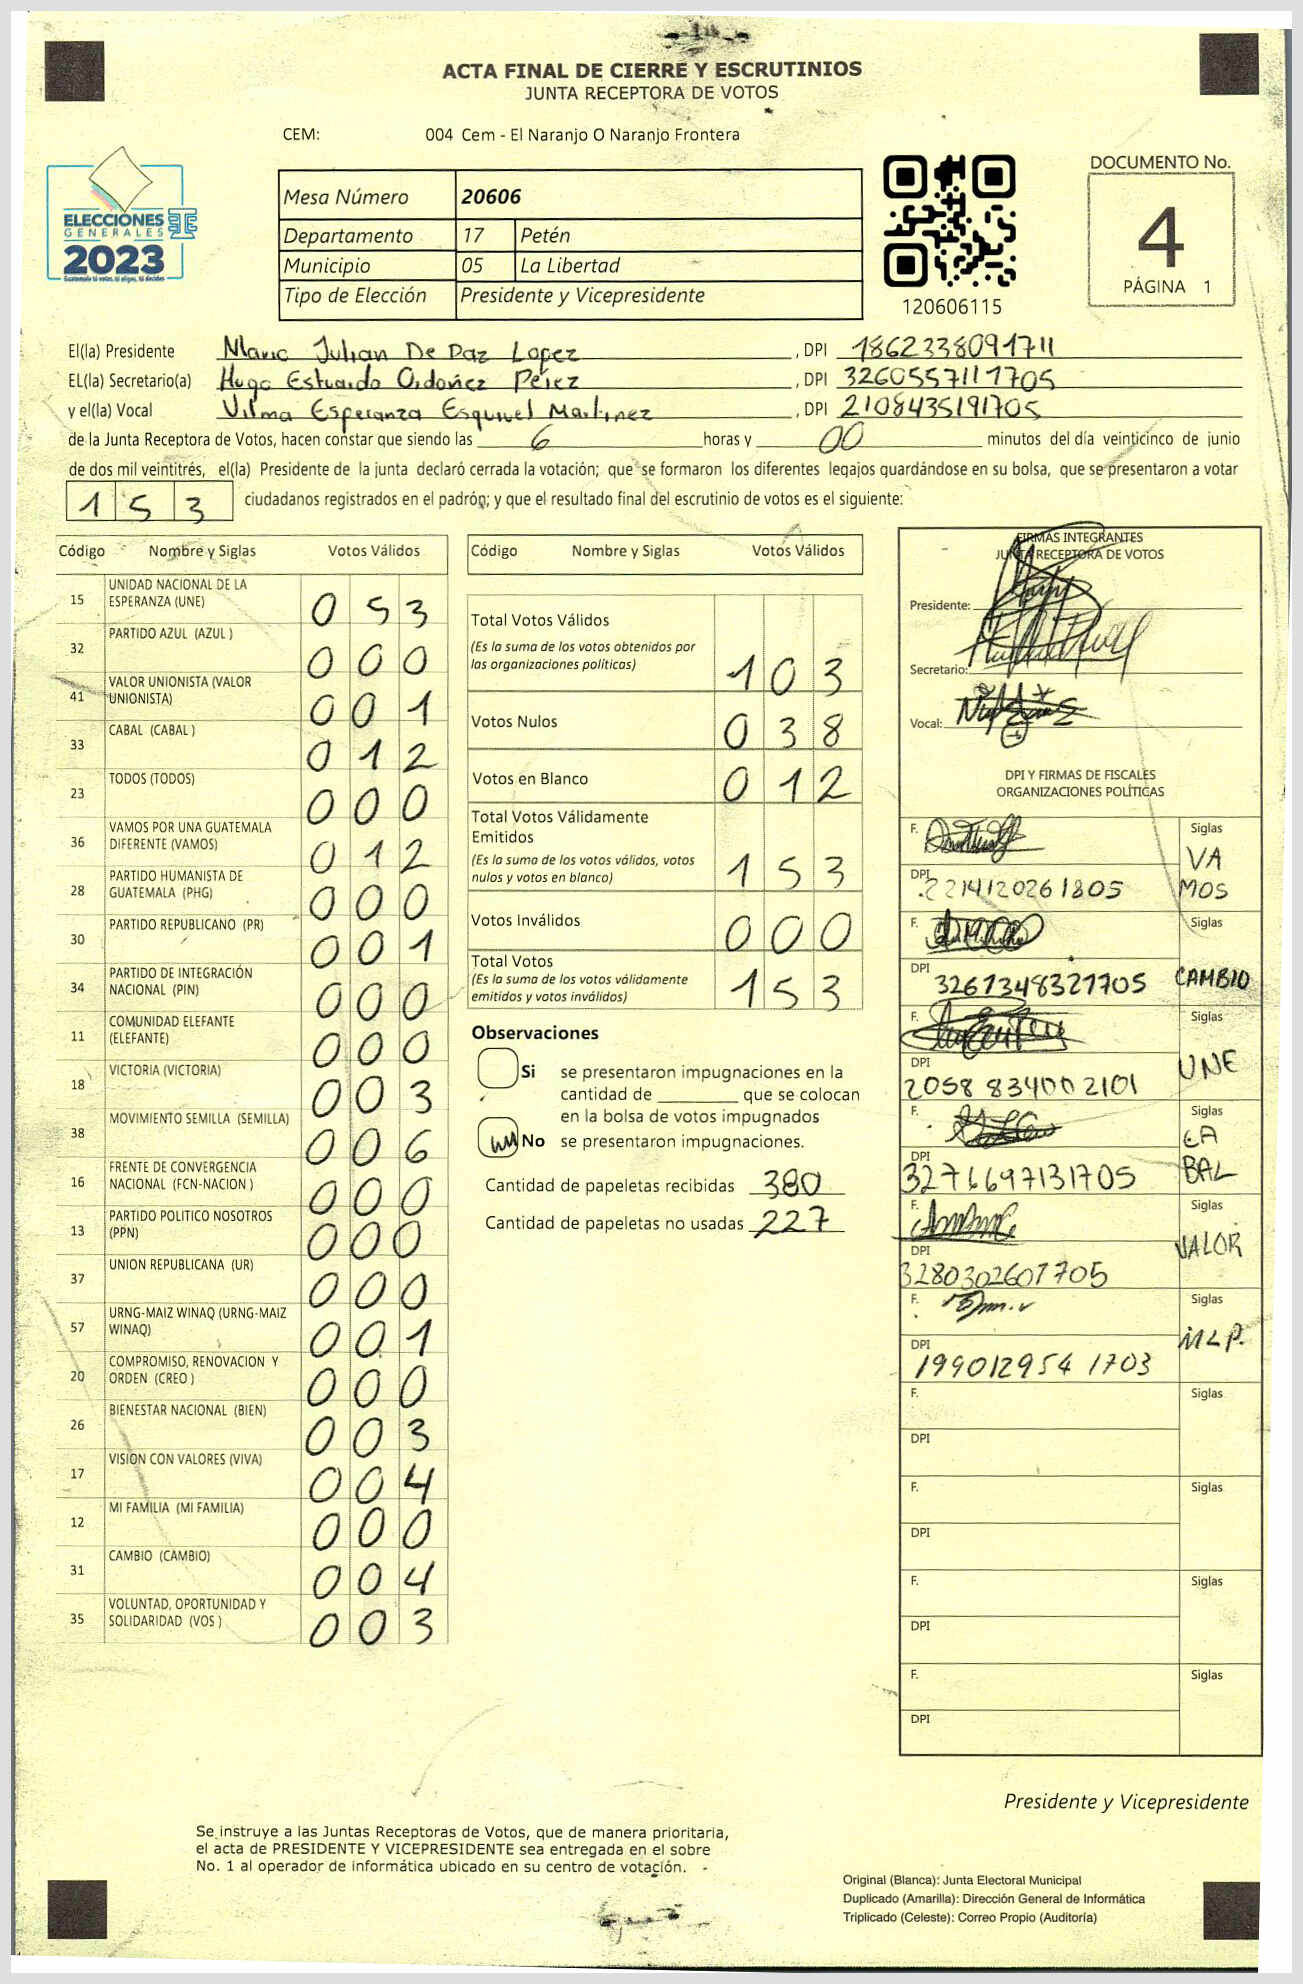 ACTA FINAL DE CIERRE Y ESCRUTINIOS
JUNTA RECEPTORA DE VOTOS
CEM: 004 Cem - El Naranjo O Naranjo Frontera
ELECCIONES
GENERALES
2023
Guatemala tú votas, tú eliges, tú decides
Mesa Número 20606
Departamento 17 Petén
Municipio 05 La Libertad
Tipo de Elección Presidente y Vicepresidente
120606115
DOCUMENTO No.
4
PÁGINA 1
El(la) Presidente Mario Julian De Paz Lopez , DPI 1862338091711
EL(la) Secretario(a) Hugo Estuardo Ordoñez Pérez , DPI 3260557111705
y el(la) Vocal Vilma Esperanza Esquivel Martinez , DPI 2108435191705
de la Junta Receptora de Votos, hacen constar que siendo las 6 horas y 00 minutos del día veinticinco de junio
de dos mil veintitrés, el(la) Presidente de la junta declaró cerrada la votación; que se formaron los diferentes legajos quardándose en su bolsa, que se presentaron a votar
153 ciudadanos registrados en el padrón; y que el resultado final del escrutinio de votos es el siguiente:
Código Nombre y Siglas Votos Válidos
15 UNIDAD NACIONAL DE LA ESPERANZA (UNE) 053
32 PARTIDO AZUL (AZUL ) 000
41 VALOR UNIONISTA (VALOR UNIONISTA) 001
33 CABAL (CABAL ) 012
23 TODOS (TODOS) 000
36 VAMOS POR UNA GUATEMALA DIFERENTE (VAMOS) 012
28 PARTIDO HUMANISTA DE GUATEMALA (PHG) 000
30 PARTIDO REPUBLICANO (PR) 001
34 PARTIDO DE INTEGRACIÓN NACIONAL (PIN) 000
11 COMUNIDAD ELEFANTE (ELEFANTE) 000
18 VICTORIA (VICTORIA) 003
38 MOVIMIENTO SEMILLA (SEMILLA) 006
16 FRENTE DE CONVERGENCIA NACIONAL (FCN-NACION ) 000
13 PARTIDO POLITICO NOSOTROS (PPN) 000
37 UNION REPUBLICANA (UR) 000
57 URNG-MAIZ WINAQ (URNG-MAIZ WINAQ) 001
20 COMPROMISO, RENOVACION Y ORDEN (CREO ) 000
26 BIENESTAR NACIONAL (BIEN) 003
17 VISION CON VALORES (VIVA) 004
12 MI FAMILIA (MI FAMILIA) 000
31 CAMBIO (CAMBIO) 004
35 VOLUNTAD, OPORTUNIDAD Y SOLIDARIDAD (VOS ) 003
Código Nombre y Siglas Votos Válidos
Total Votos Válidos 103
(Es la suma de los votos obtenidos por
las organizaciones políticas)
Votos Nulos 038
Votos en Blanco 012
Total Votos Válidamente
Emitidos 153
(Es la suma de los votos válidos, votos
nulos y votos en blanco)
Votos Inválidos 000
Total Votos 153
(Es la suma de los votos válidamente
emitidos y votos inválidos)
Observaciones
Si se presentaron impugnaciones en la
cantidad de ________ que se colocan
en la bolsa de votos impugnados
No se presentaron impugnaciones.
Cantidad de papeletas recibidas 380
Cantidad de papeletas no usadas 227
FIRMAS INTEGRANTES
JUNTA RECEPTORA DE VOTOS
Presidente:
Secretario:
Vocal:
DPI Y FIRMAS DE FISCALES
ORGANIZACIONES POLÍTICAS
F. Siglas
DPI 2214120261805 VA MOS
F. Siglas
DPI 3267348321705 CAMBIO
F. Siglas
DPI 2058 83400 2101 UNE
F. Siglas
DPI 3276697131705 CA BAL
F. Siglas
DPI 3280302601705 VALOR
F. Siglas
DPI 199012954 1703 MLP.
F. Siglas
DPI
F. Siglas
DPI
F. Siglas
DPI
F. Siglas
DPI
Presidente y Vicepresidente
Se instruye a las Juntas Receptoras de Votos, que de manera prioritaria,
el acta de PRESIDENTE Y VICEPRESIDENTE sea entregada en el sobre
No. 1 al operador de informática ubicado en su centro de votación.
Original (Blanca): Junta Electoral Municipal
Duplicado (Amarilla): Dirección General de Informática
Triplicado (Celeste): Correo Propio (Auditoría)